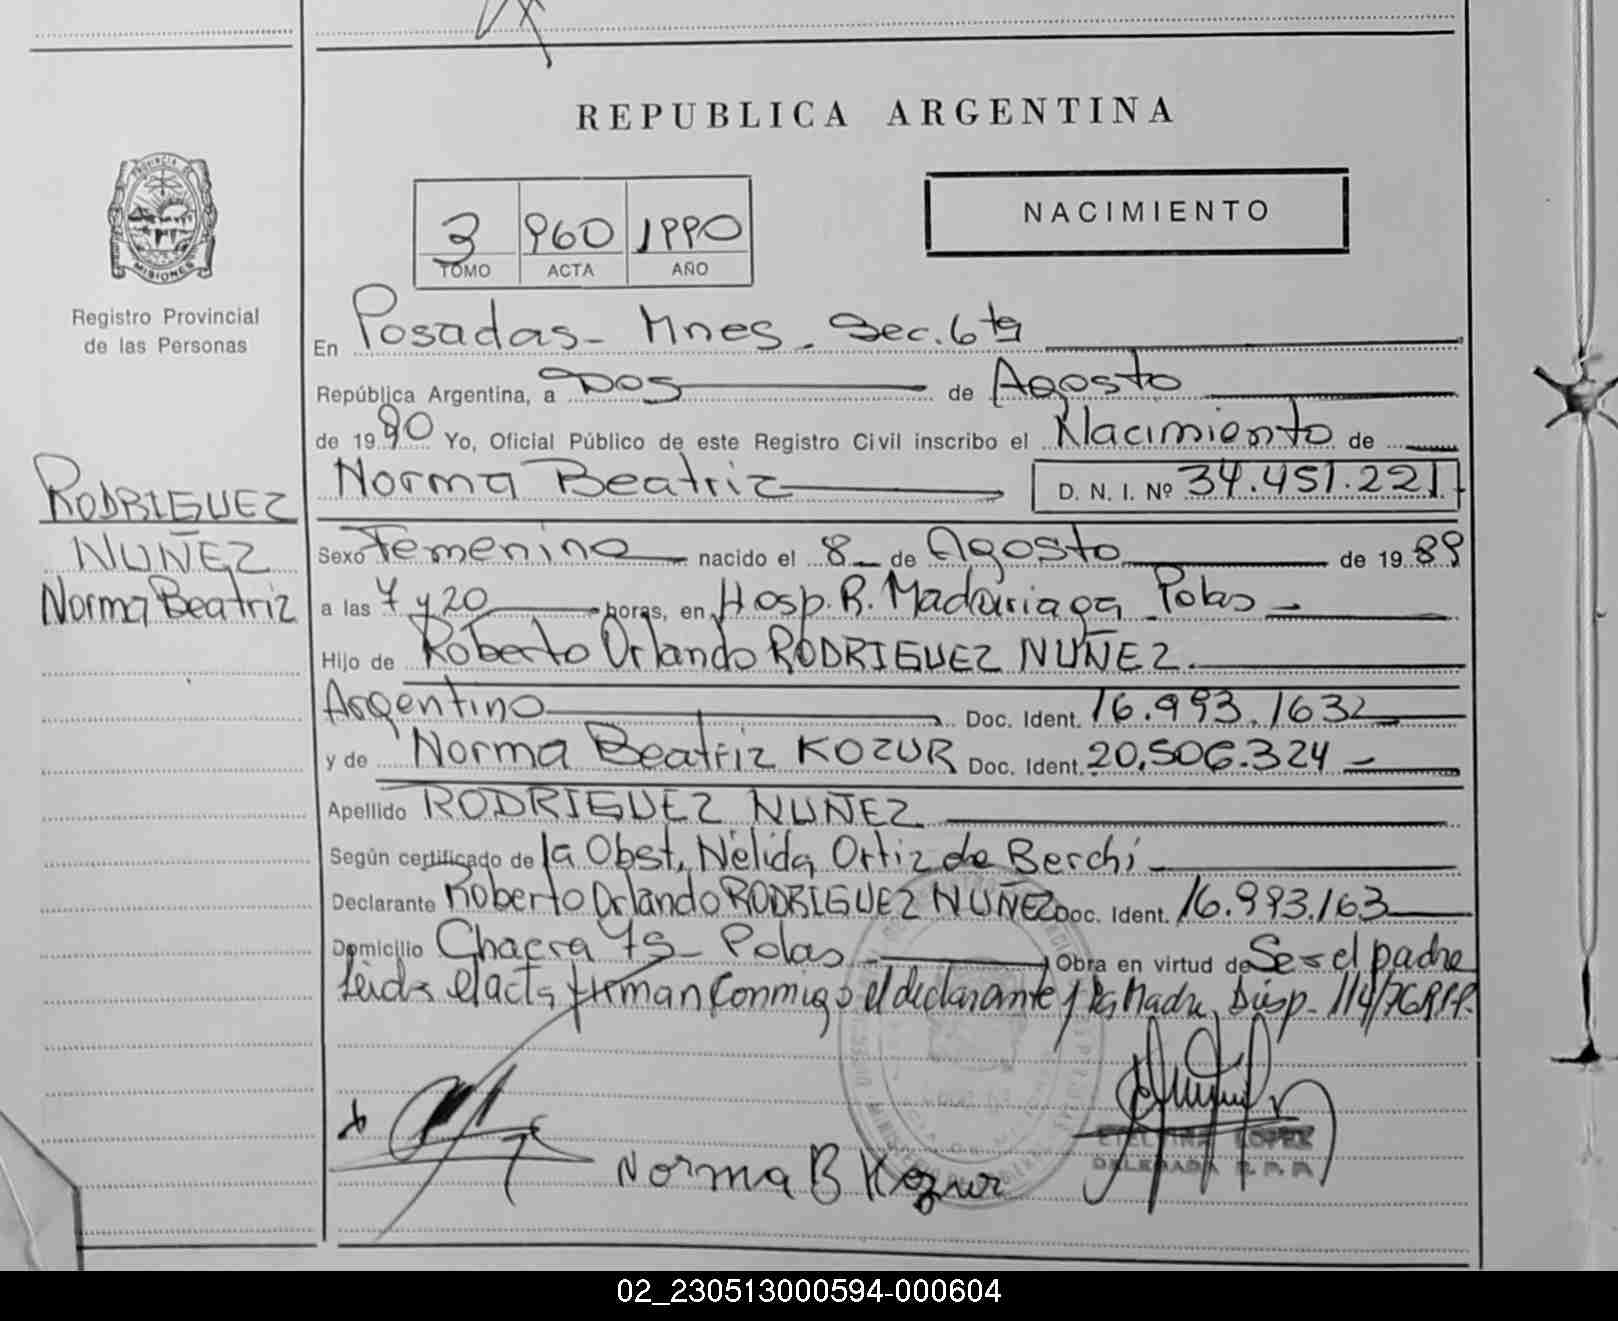 REPUBLICA ARGENTINA
PROVINCIA
MISIONES
Registro Provincial
de las Personas
3 960 1990
TOMO ACTA AÑO
NACIMIENTO
En Posadas- Mnes. Sec. 6ta
República Argentina, a Dos de Agosto
de 1990 Yo, Oficial Público de este Registro Civil inscribo el Nacimiento de
Norma Beatriz D. N. I. Nº 34.451.221
RODRIGUEZ
NUÑEZ
Norma Beatriz
Sexo Femenino nacido el 8 de Agosto de 1989
a las 7 y 20 horas, en Hosp. R. Madariaga Pdas
Hijo de Roberto Orlando RODRIGUEZ NUÑEZ.
Argentino Doc. Ident. 16.993.163
y de Norma Beatriz KOZUR Doc. Ident. 20.506.324
Apellido RODRIGUEZ NUÑEZ
Según certificado de la Obst. Nélida Ortiz de Berchi
Declarante Roberto Orlando RODRIGUEZ NUÑEZ Doc. Ident. 16.993.163
Domicilio Chacra 75- Pdas Obra en virtud de Ser el padre
Leida el acta firman conmigo el declarante y la Madre, Disp. 114/76
Norma B Kozur
ETELVINA LOPEZ
DELEGADA R. P. P.
02_230513000594-000604